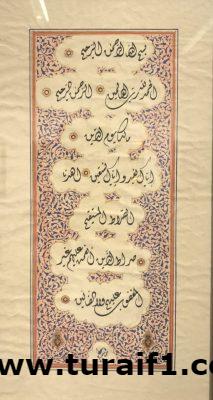 بسم الله الرحمن الرحيم
الحمد لله رب العالمين الرحمن الرحيم
مالك يوم الدين
اياك نعبد واياك نستعين اهدنا
الصراط المستقيم
صراط الذين انعمت عليهم غير
المغضوب عليهم ولا الضالين
www.turaif1.co